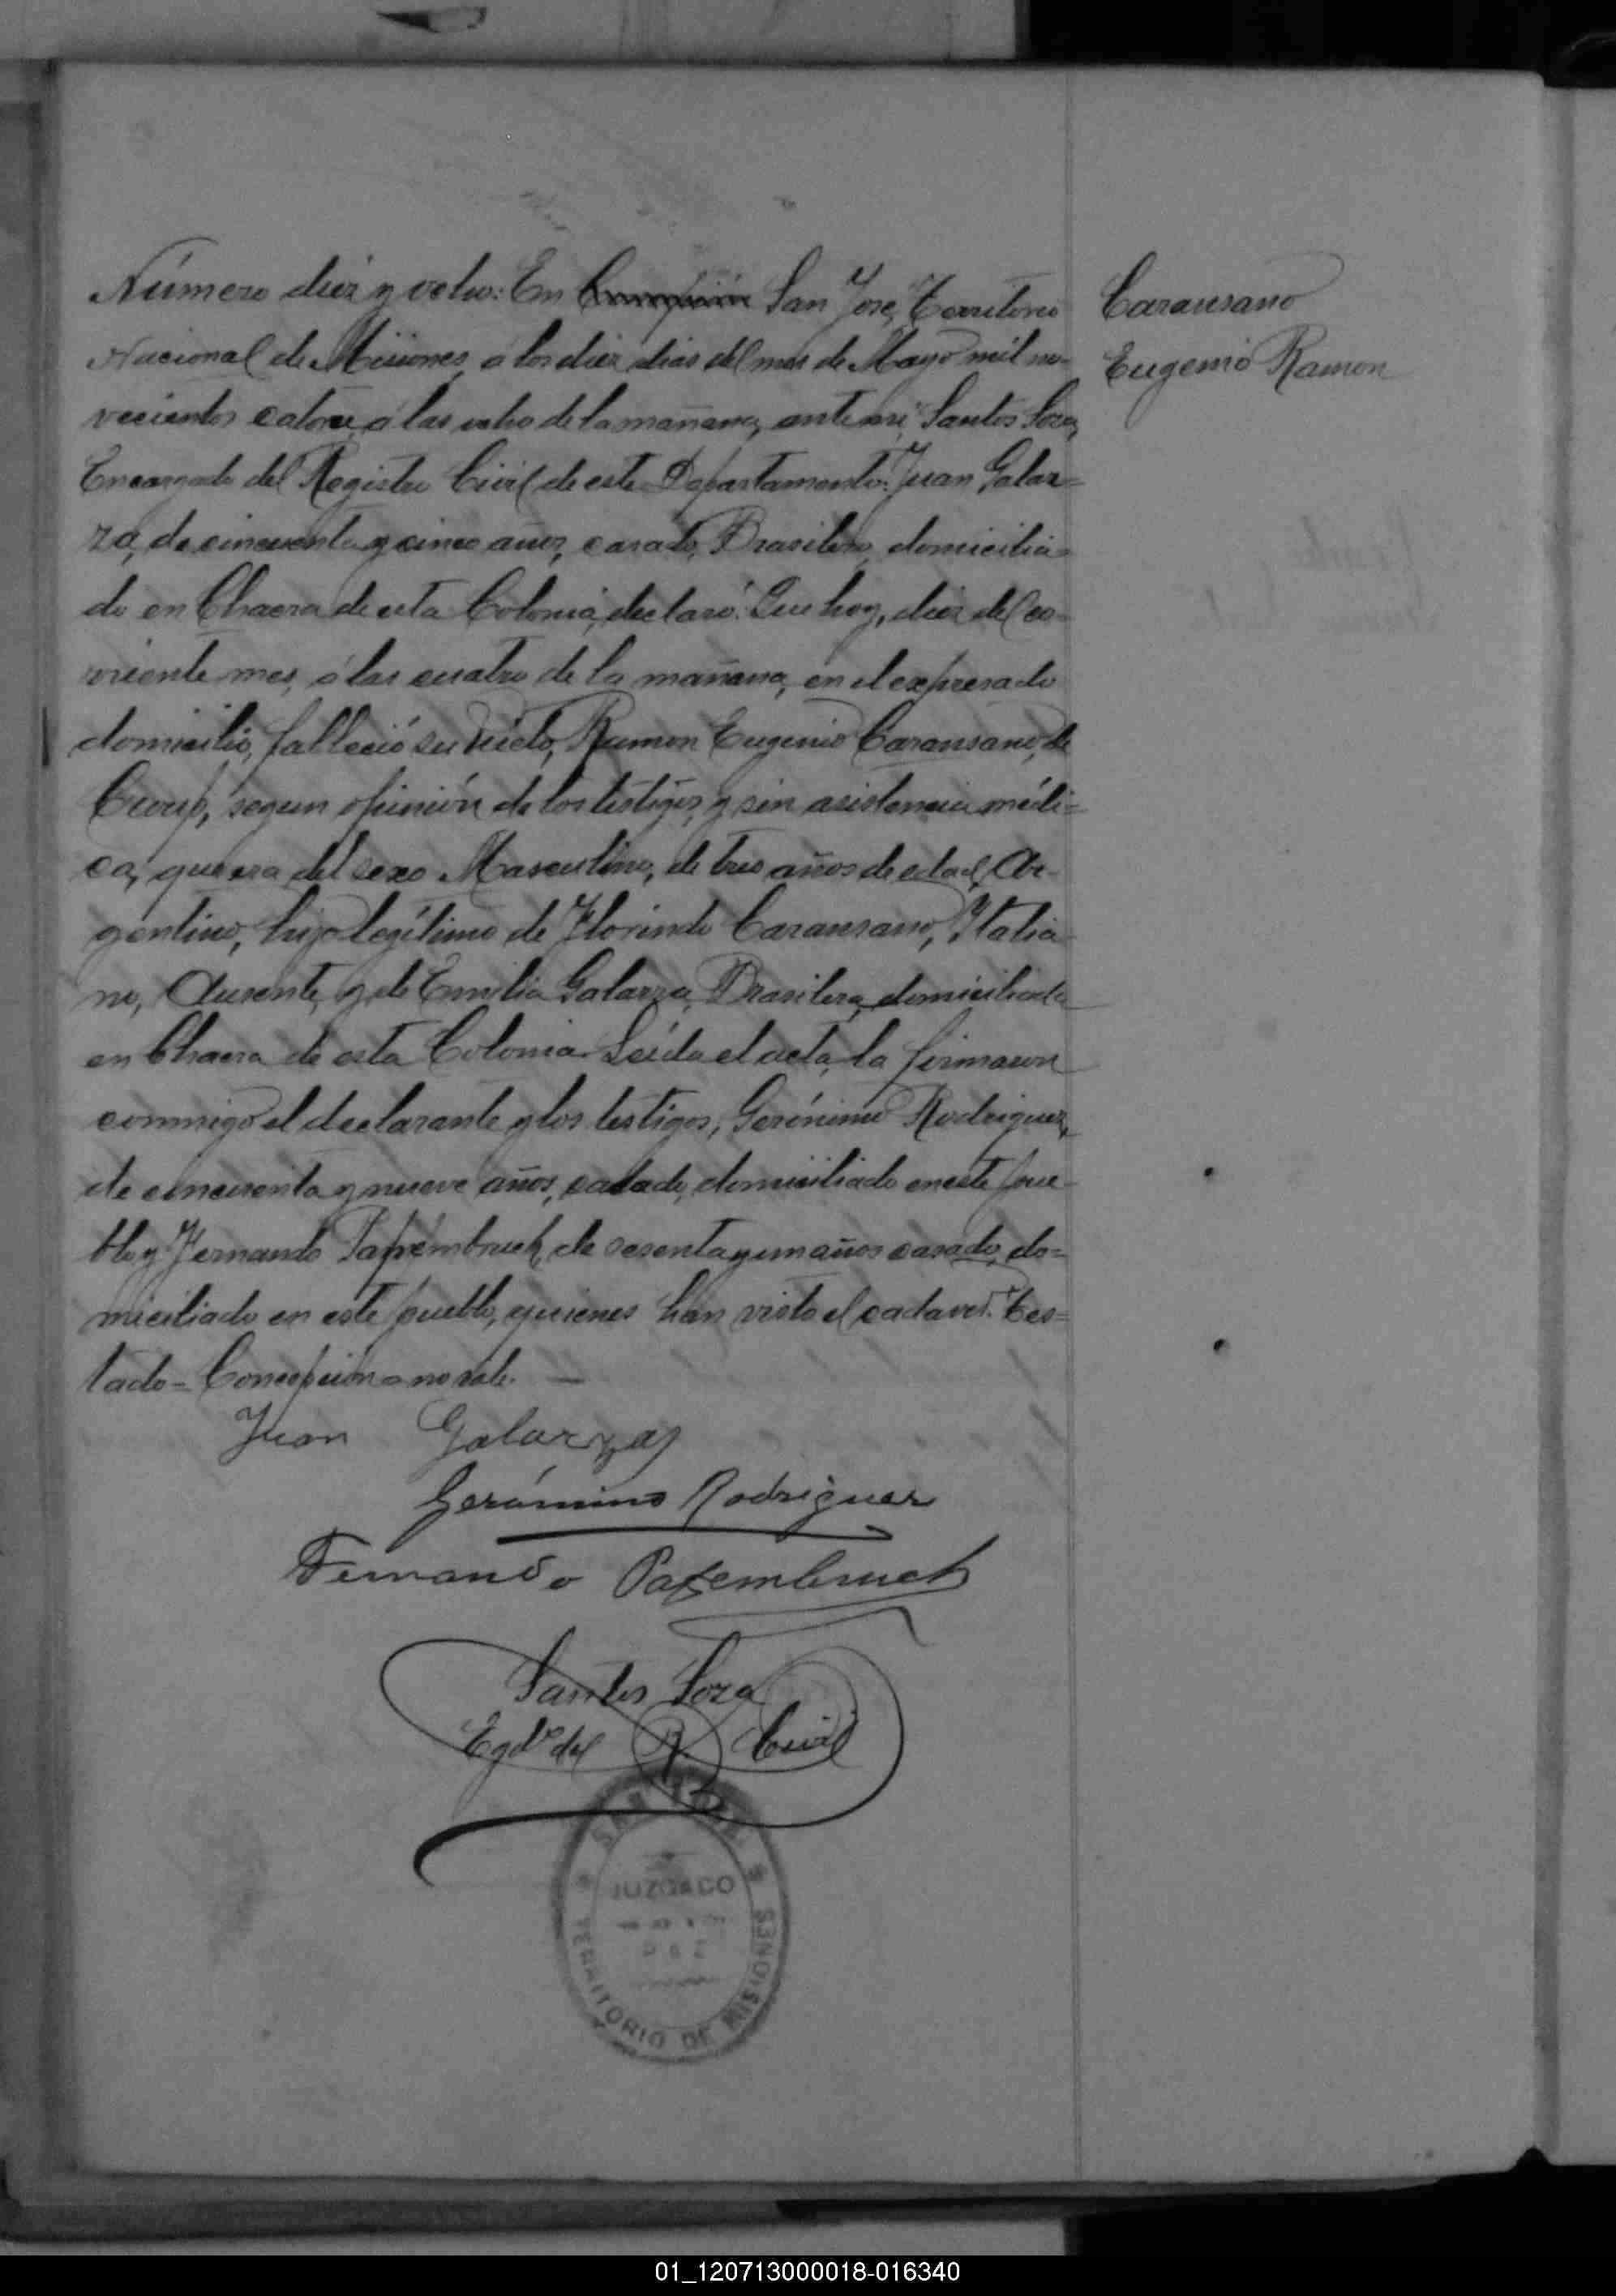 Número diez y ocho: En Concepción San José, Territorio
Nacional de Misiones, á los diez dias del mes de Mayo mil no-
vecientos catorce, á las ocho de la mañana, ante mi, Santos Soza,
Encargado del Registro Civil de este Departamento: Juan Galar=
za, de cincuenta y cinco años, casado, Brasilero, domicilia=
do en Chacra de esta Colonia, declaró: Que hoy, diez del co=
rriente mes, á las cuatro de la mañana, en el expresado
domicilio, falleció su nieto, Ramon Eugenio Caransano, de
Crup, segun opinión de los testigos, y sin asistencia médi=
ca, que era del sexo Masculino, de tres años de edad, Ar-
gentino, hijo legítimo de Florindo Caransano, Italia-
no, Ausente, y de Emilia Galarza, Brasilera, domiciliada
en Chacra de esta Colonia. Leída el acta, la firmaron
conmigo el declarante y los testigos, Gerónimo Rodriguez,
de cincuenta y nueve años, casado, domiciliado en este pue-
blo y Fernando Papembruch, de sesenta y un años casado, do=
miciliado en este pueblo, quienes han visto el cadaver. Tes=
tado = Concepción = no vale. —
Juan Galarza
Gerónimo Rodriguez
Fernando Papembruch
Santos Soza
Egdo del R. Civil
SAN JOSE
JUZGADO
PAZ
TERRITORIO DE MISIONES
Caransano
Eugenio Ramon
01_120713000018-016340